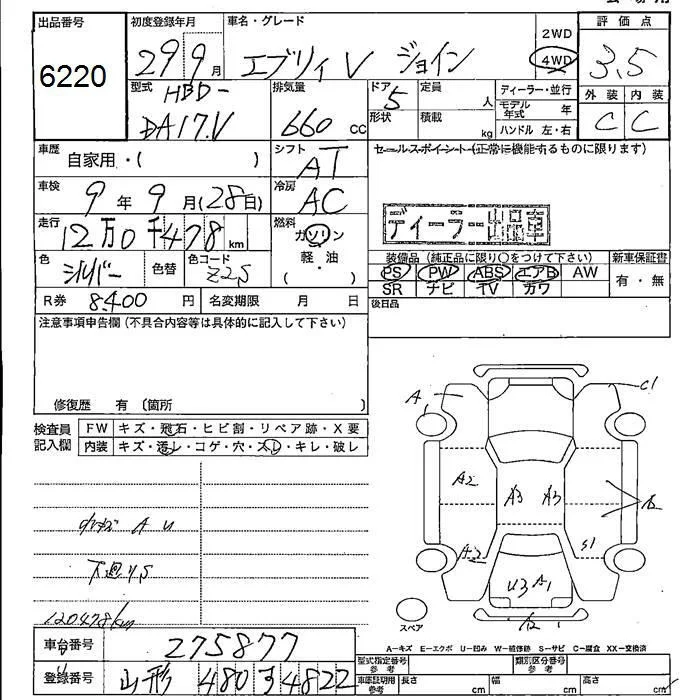 出品番号 初度登録年月 車名・グレード 評価点
6220 29 9月 エブリィV ジョイン 2WD 4WD 3.5
型式 HBD- DA17V 排気量 660 cc ドア 5 形状 定員 人 積載 kg ディーラー・並行 モデル年式 年 ハンドル 左・右 外装 C 内装 C
車歴 自家用・( ) シフト AT セールスポイント(正常に機能するものに限ります)
車検 9年9月(28日) 冷房 AC
ディーラー出品車
走行 12万0千478km 燃料 ガソリン 軽・油 ( )
色 シルバー 色替 色コード Z2S
装備品(純正品に限り○をつけて下さい) 新車保証書
PS PW ABS エアB AW 有・無
SR ナビ TV カワ
R券 8400円 名変期限 月 日 後日品
注意事項申告欄(不具合内容等は具体的に記入して下さい)
修復歴 有 〔箇所 〕
検査員記入欄 FW キズ・飛石・ヒビ割・リペア跡・X要
内装 キズ・汚レ・コゲ・穴・スレ・キレ・破レ
A C1
A2 A3 A3 A2
A2 S1
U3 A1
A2
A U
下廻りS
120478km
スペア
A-キズ E-エクボ U-凹み W-補修跡 S-サビ C-腐食 XX-交換済
車台番号 275877 型式指定番号 参考 類別区分番号 参考
登録番号 山形 480す4822 車庫証明用 参考 長さ cm 幅 cm 高さ cm